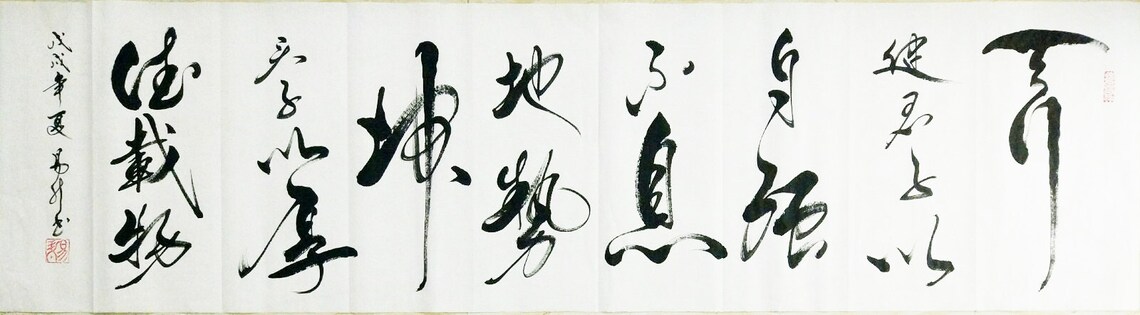 天行
健君子以
自强
不息
地勢
坤
君子以厚
德載物
戊戌年夏易